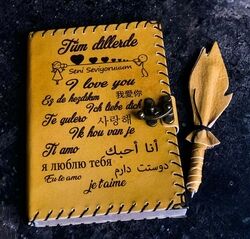 Tüm dillerde
Seni Seviyoruuum
I love you
Ez de hezdıkım 我愛你
Ich liebe dich
Te quiero 사랑해
Ik hou van je
Ti amo أنا أحبك
я люблю тебя دوستت دارم
Eu te amo
je taime